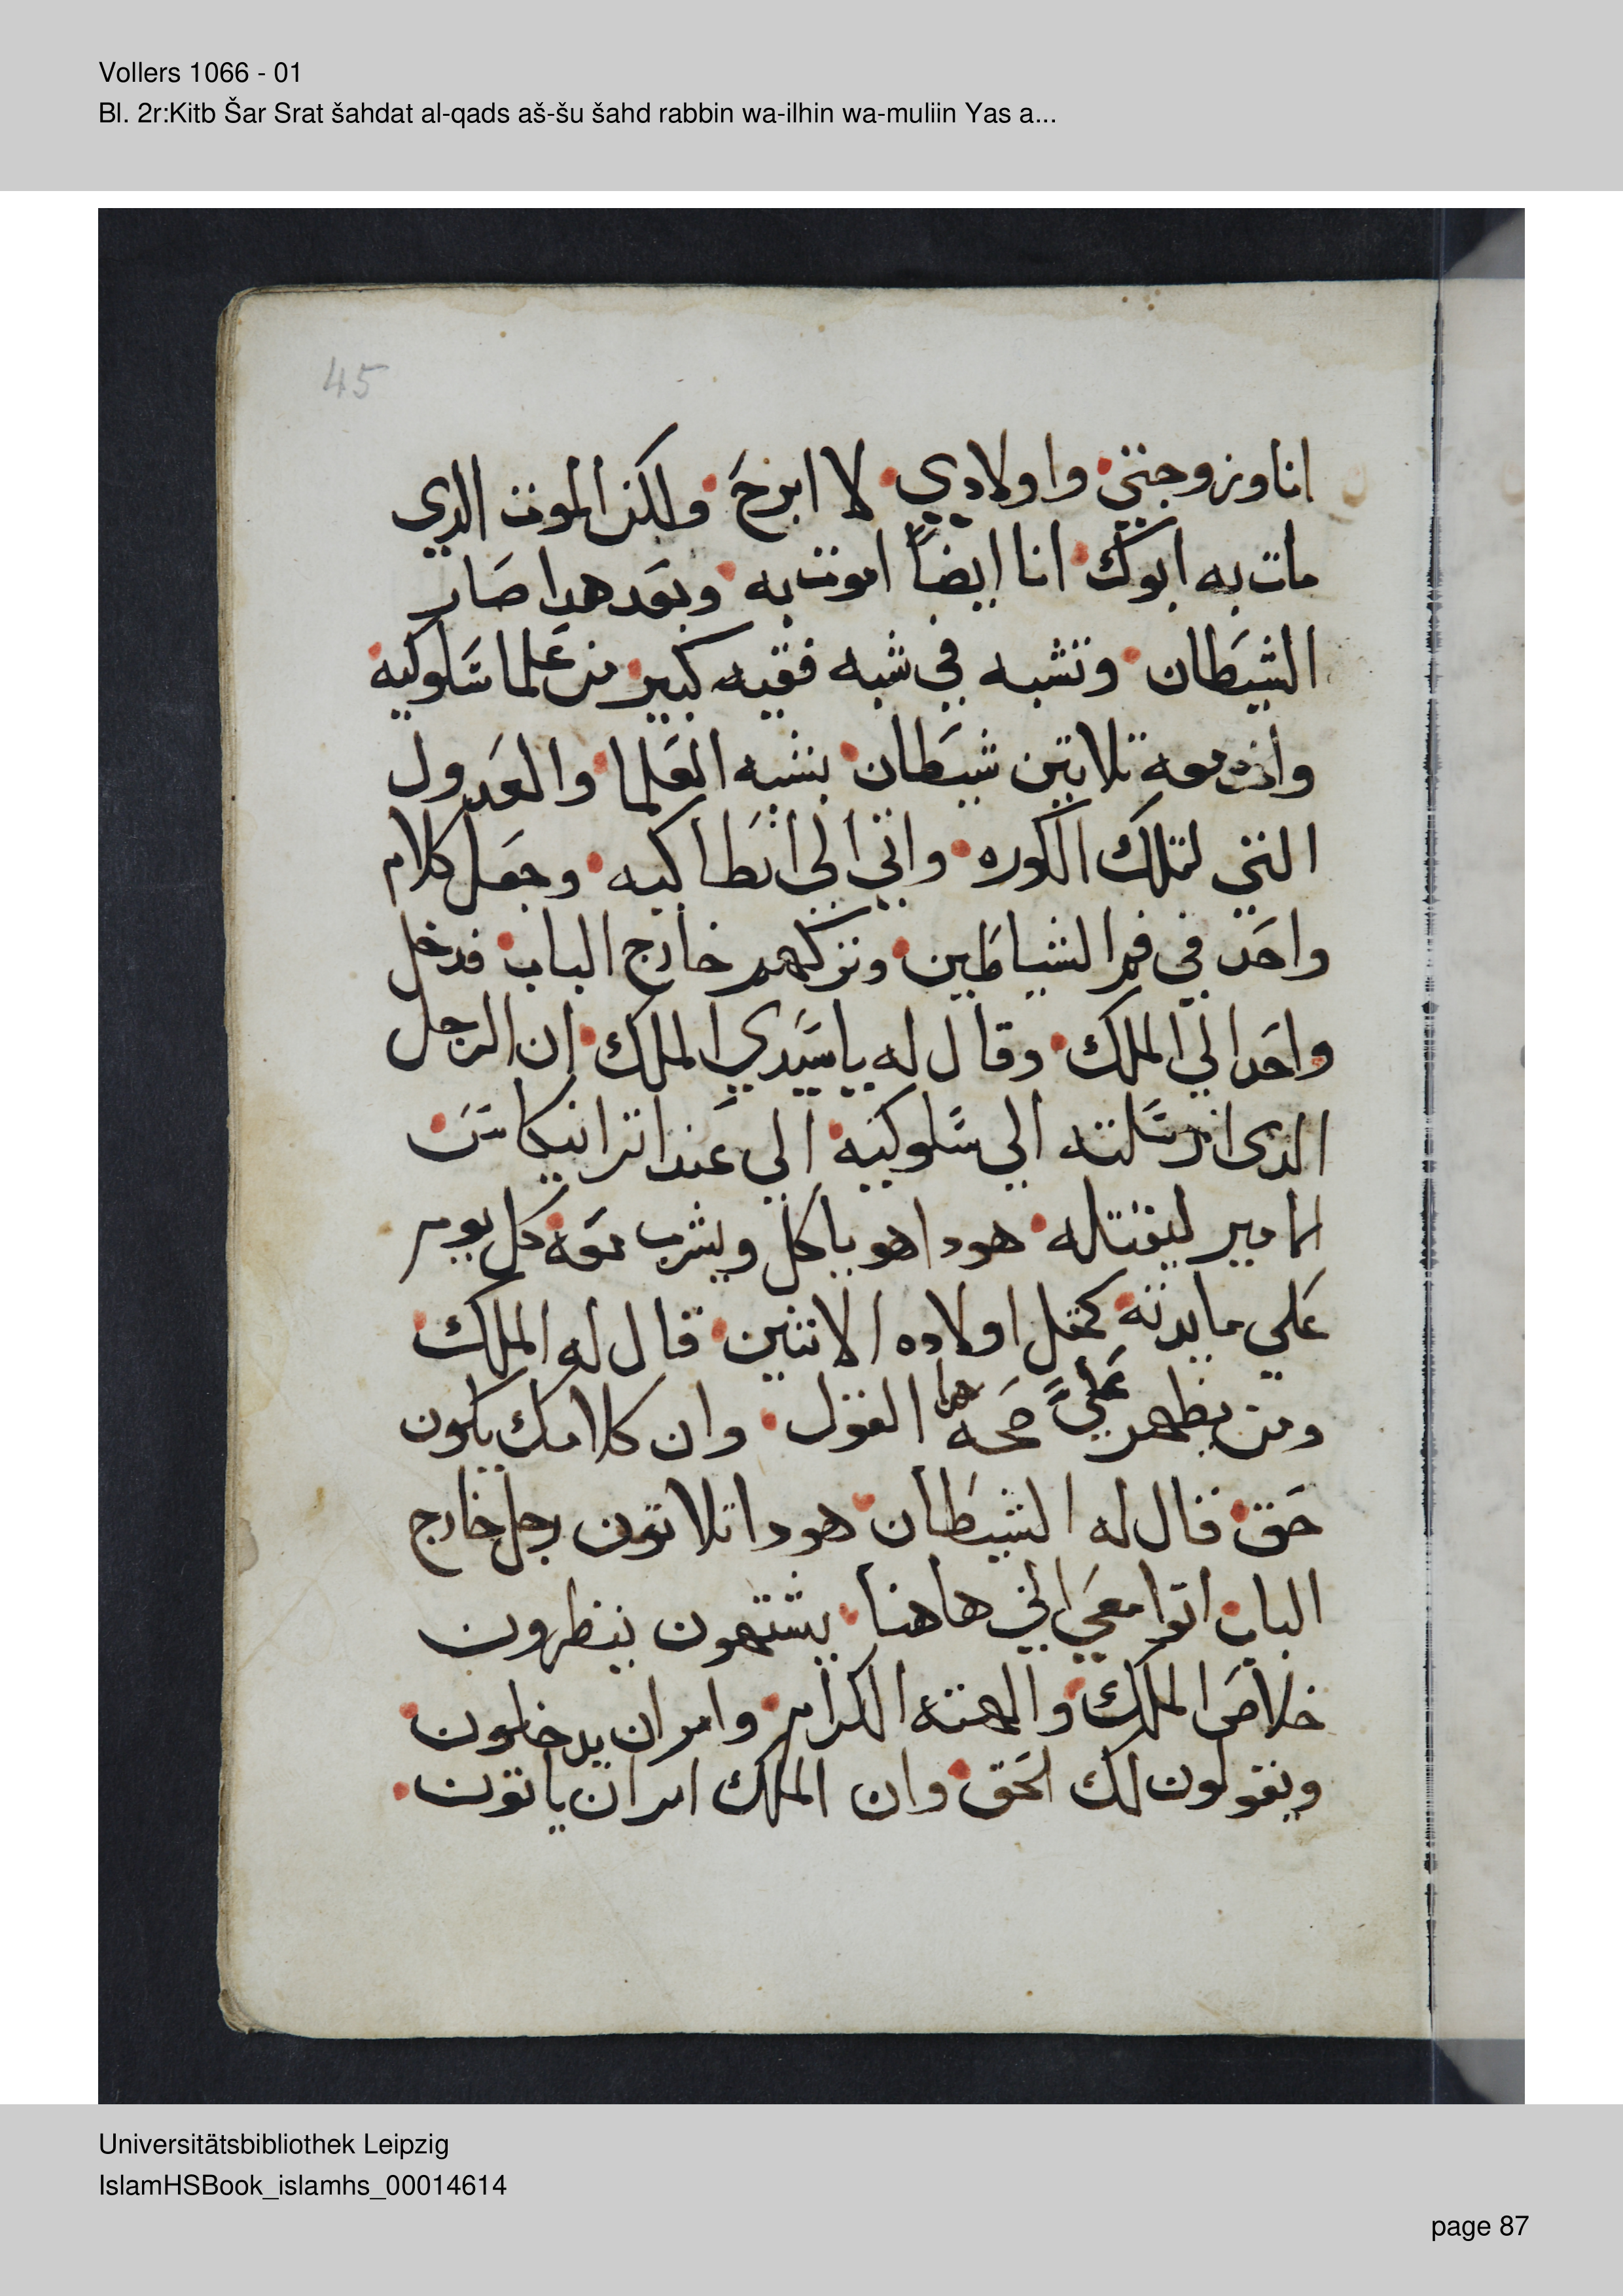 Vollers 1066 - 01
Bl. 2r:Kitb Šar Srat šahdat al-qads aš-šu šahd rabbin wa-ilhin wa-muliin Yas a...
45
انا وزوجتي واولادي لا ابرح ولكن الموت الدي
مات به ابوك انا ايضاً اموت به وبعد هدا صار
الشيطان وتشبه في شبه فقيه كبير من علما سلوكيه
واخد معه تلاتين شيطان بشبه العلما والعدول
التي لتلك الكوره واتي الي انطاكيه وجعل كلام
واحد في فم الشياطين وتركهم خارج الباب فدخل
واحد الي الملك وقال له ياسيدي الملك ان الرجل
الدي ارسلته الي سلوكيه الي عند
الامير ليقتله هودا هو ياكل ويشرب معه كل يوم
علي مايدته كمتل اولاده الاتنين قال له الملك
ومن يظهر علي صحة هدا القول وان كلامك يكون
حق قال له الشيطان هودا تلاتون رجل خارج
الباب اتوا معي الي هاهنا يشتهون ينظرون
خلاص الملك والهته الكرام وامر ان يدخلون
ويقولون لك الحق وان الملك امر ان ياتون
Universitätsbibliothek Leipzig
IslamHSBook_islamhs_00014614
page 87